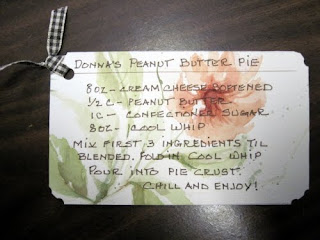 Donna's Peanut Butter Pie
8oz - Cream Cheese Softened
1/2 C - Peanut Butter
1C - Confectioner Sugar
8oz - Cool Whip
Mix first 3 ingredients til
blended. Fold in Cool Whip
Pour into pie crust.
Chill and enjoy!